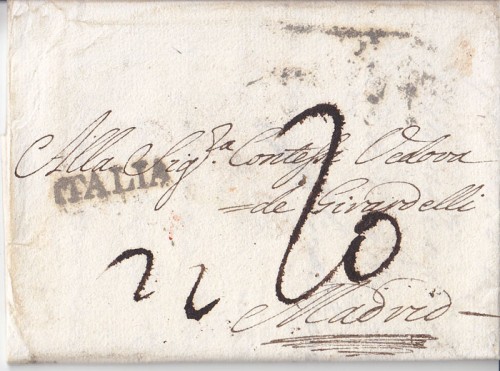 Alla Sig.ra Contessa Vedova
ITALIA
=de Girardelli
Madrid